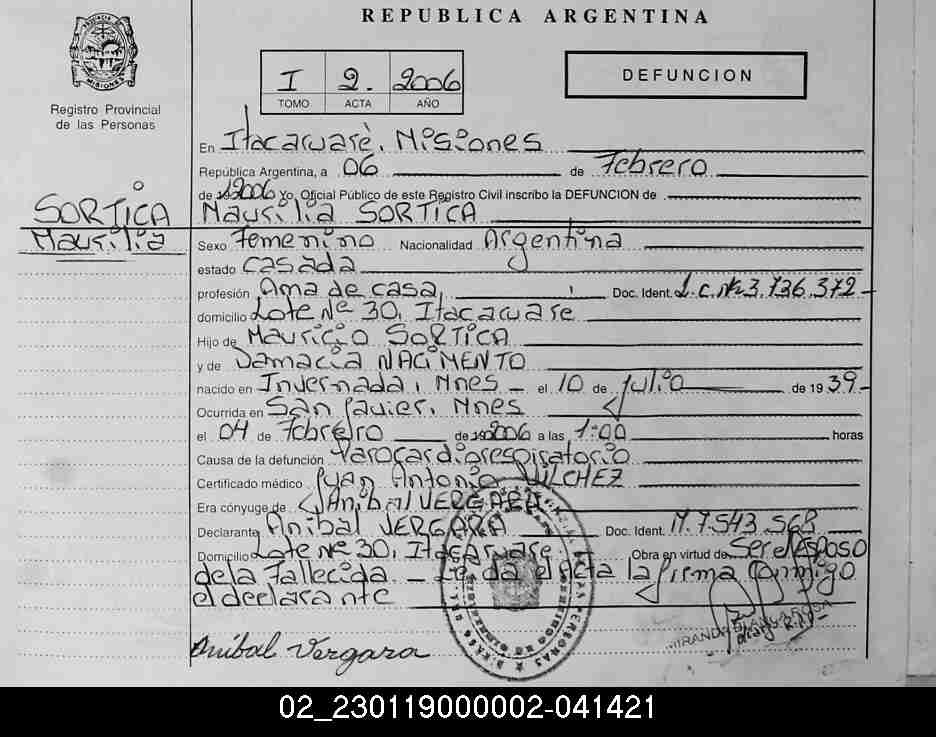 REPUBLICA ARGENTINA
PROVINCIA DE MISIONES
Registro Provincial
de las Personas
I 2. 2006
TOMO ACTA AÑO
DEFUNCION
En Itacaruaré, Misiones
República Argentina, a 06 de Febrero
de 2006 Yo, Oficial Público de este Registro Civil inscribo la DEFUNCION de
SORTICA
Maurilia
Maurilia SORTICA
Sexo Femenino Nacionalidad Argentina
estado Casada
profesión Ama de casa, Doc. Ident. L.C. Nº 3.736.372
domicilio Lote Nº 30, Itacaruare
Hijo de Mauricio SORTICA
y de Damacia NACIMENTO
nacido en Invernada, Mnes - el 10 de Julio de 1939
Ocurrida en San Javier, Mnes
el 04 de Febrero de 2006 a las 1:00 horas
Causa de la defunción Parocardiorespiratorio
Certificado médico Juan Antonio VILCHEZ
Era cónyuge de Anibal VERGARA
Declarante Anibal VERGARA Doc. Ident. M. 7.543.568
Domicilio Lote Nº 30, Itacaruare Obra en virtud de Ser el Esposo
de la Fallecida - Leida el Acta la firma conmigo
el declarante
Anibal Vergara
MIRANDA BLANCA ROSA
02_230119000002-041421